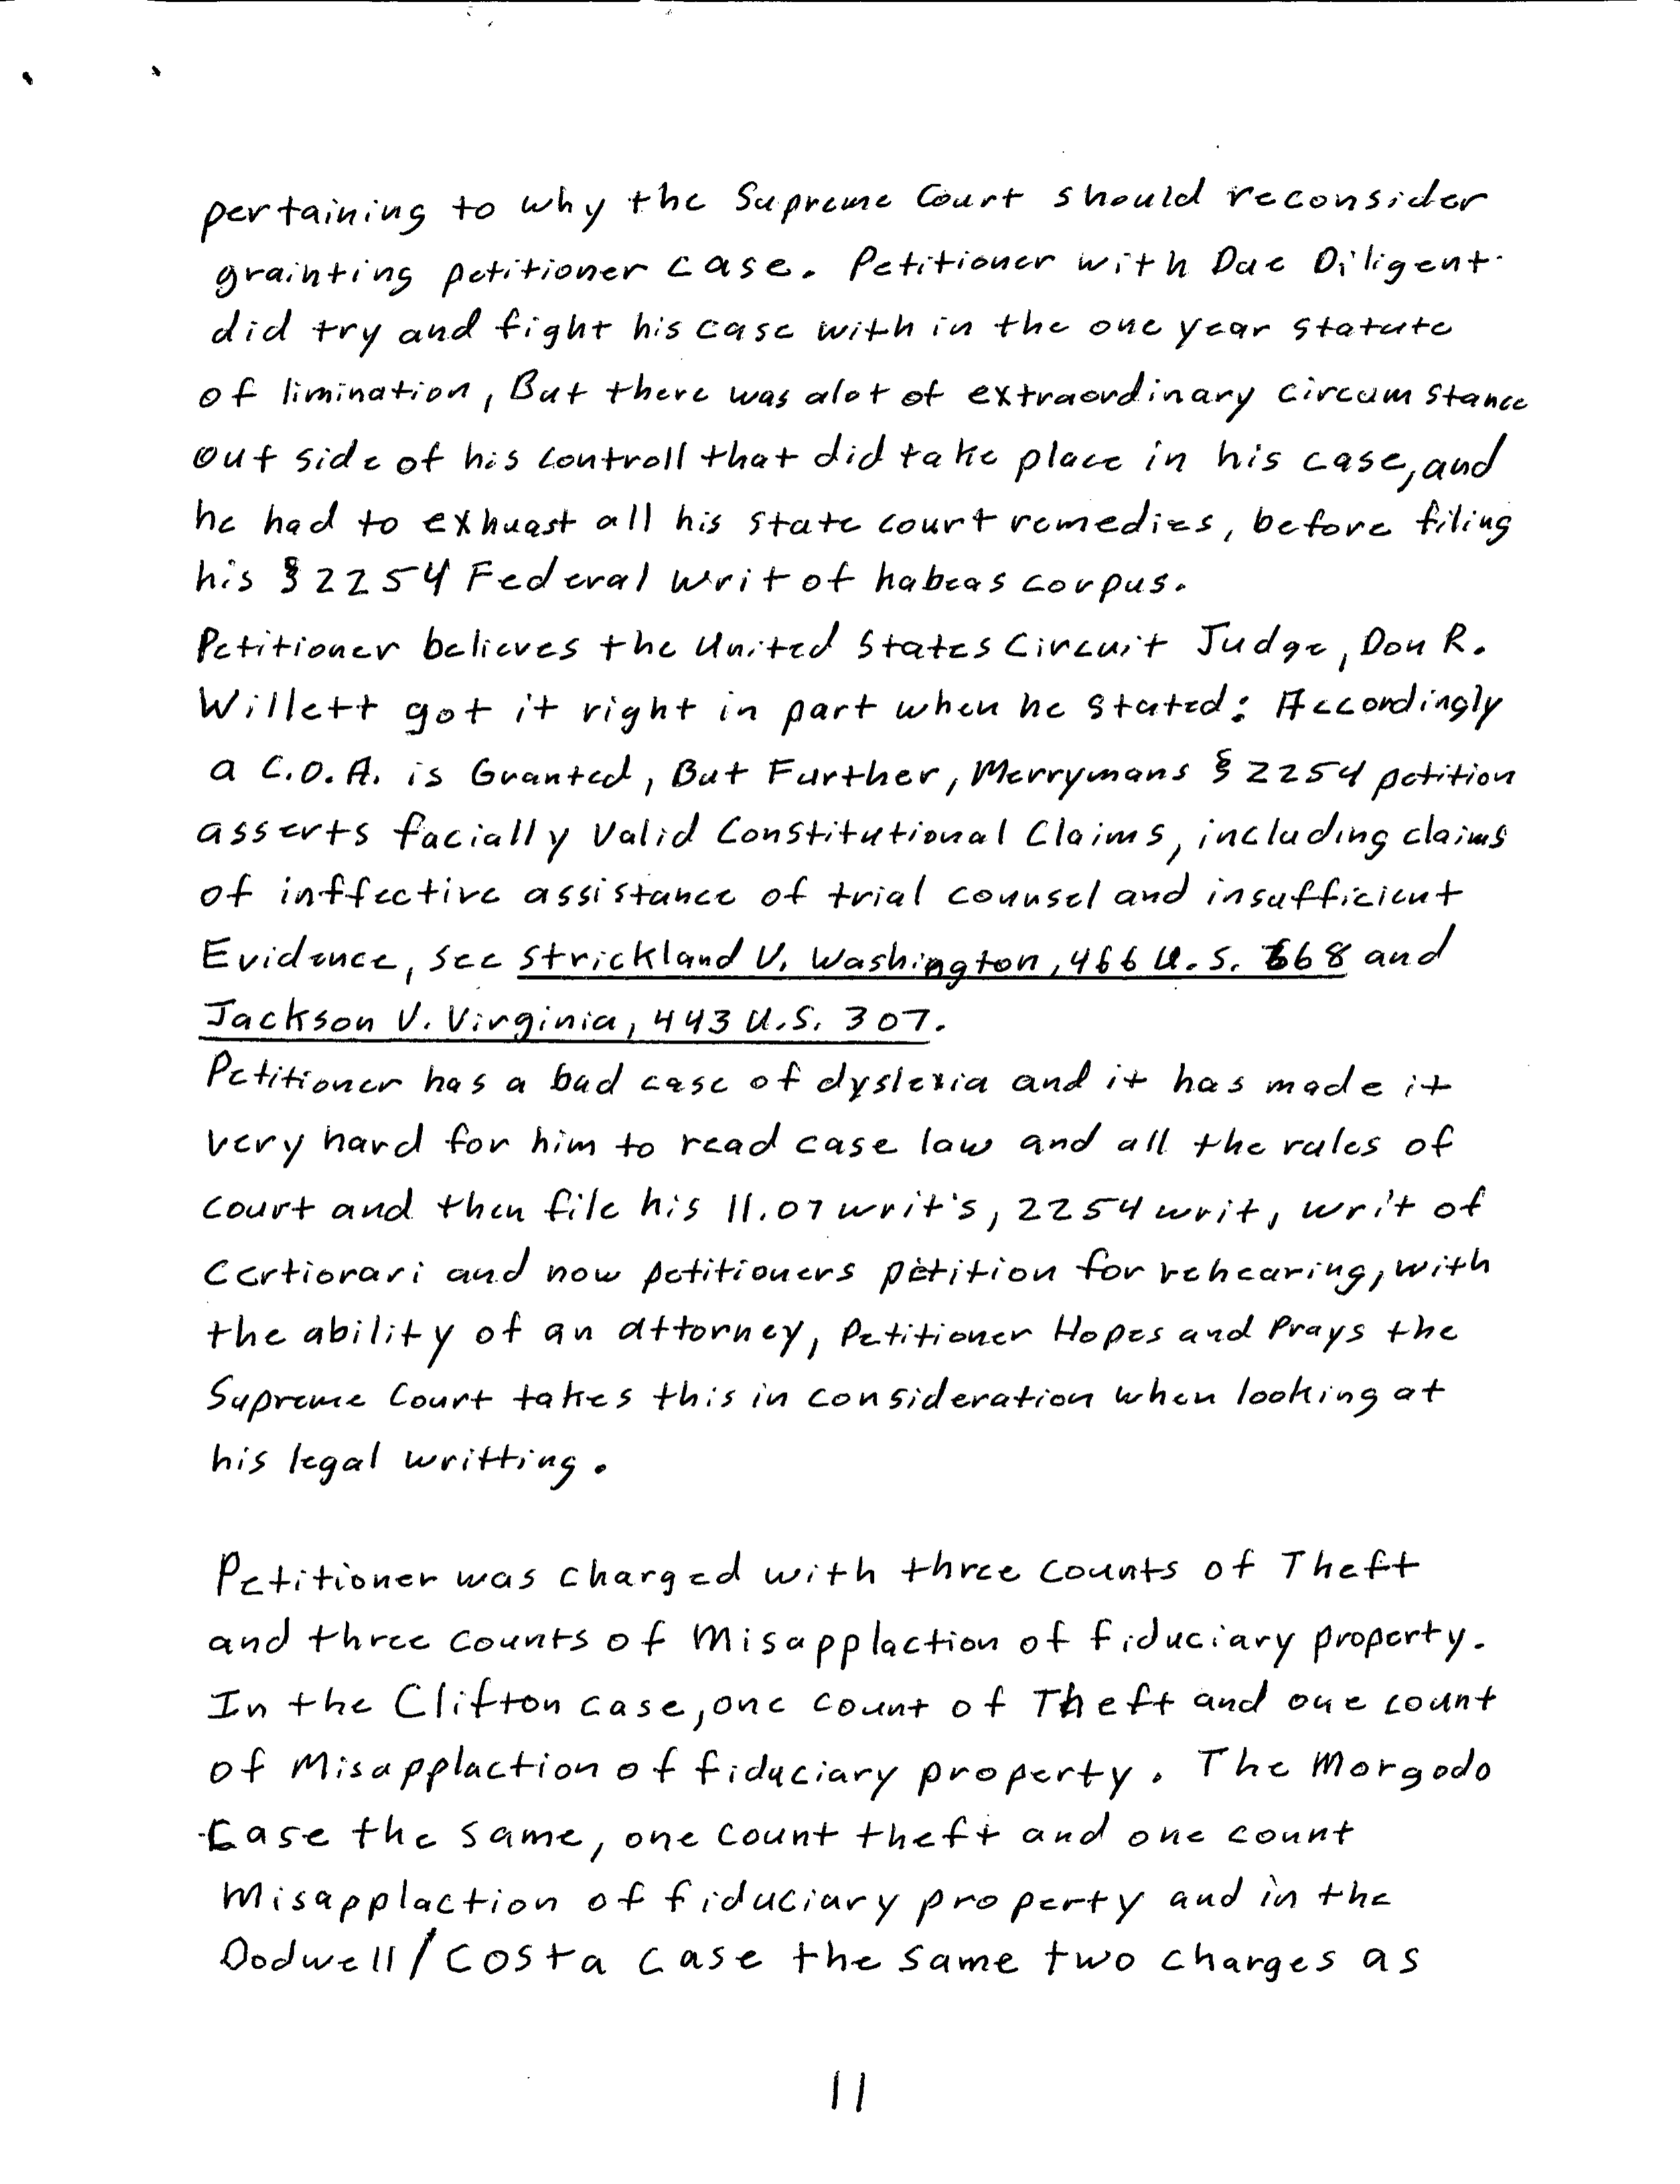 pertaining to why the Supreme Court should reconsider
grainting petitioner case. Petitioner with Due Diligent
did try and fight his case with in the one year statute
of limination, But there was alot of extraordinary circum stance
out side of his controll that did take place in his case, and
he had to exhuast all his state court remedies, before filing
his § 2254 Federal writ of habeas corpus.
Petitioner believes the United States Circuit Judge, Don R.
Willett got it right in part when he stated: Accordingly
a C.O.A. is Granted, But Further, Merrymans § 2254 petition
asserts facially Valid Constitutional Claims, including claims
of inffective assistance of trial counsel and insufficient
Evidence, see Strickland V. Washington, 466 U.S. 668 and
Jackson V. Virginia, 443 U.S. 307.
Petitioner has a bad case of dyslexia and it has made it
very hard for him to read case law and all the rules of
court and then file his 11.07 writ's, 2254 writ, writ of
Certiorari and now petitioners petition for rehearing, with
the ability of an attorney, Petitioner Hopes and Prays the
Supreme Court takes this in consideration when looking at
his legal writting.
Petitioner was charged with three counts of Theft
and three counts of Misapplaction of fiduciary property.
In the Clifton case, one count of Theft and one count
of Misapplaction of fiduciary property. The Morgodo
Case the same, one count theft and one count
Misapplaction of fiduciary property and in the
Dodwell/Costa case the same two charges as
11